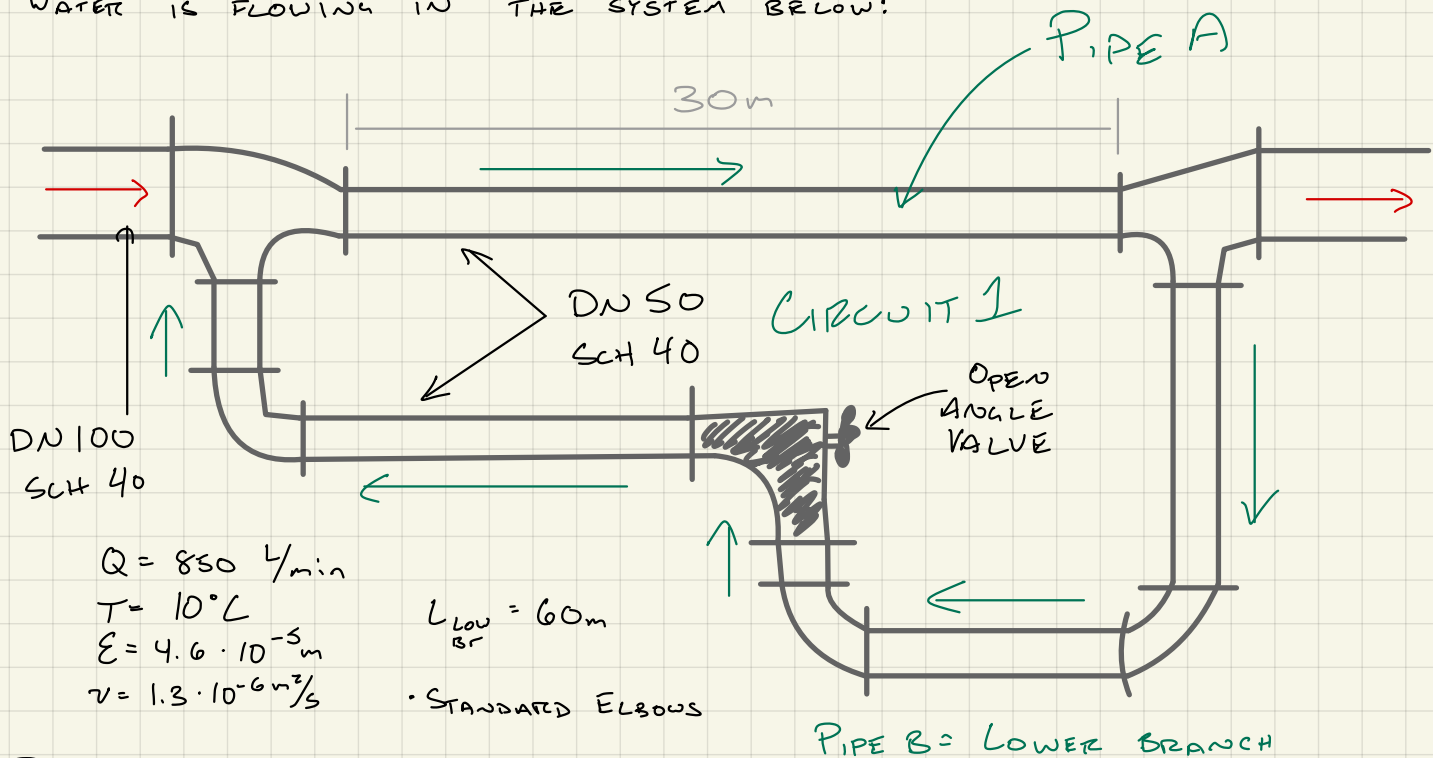 WATER IS FLOWING IN THE SYSTEM BELOW:
PIPE A
30m
DN 50
SCH 40
CIRCUIT 1
OPEN
ANGLE
VALUE
DN 100
SCH 40
Q = 850 L/min
T= 10°C
ε = 4.6 · 10⁻⁵m
ν = 1.3 · 10⁻⁶ m²/s
L LOW BR = 60m
· STANDARD ELBOWS
PIPE B = LOWER BRANCH